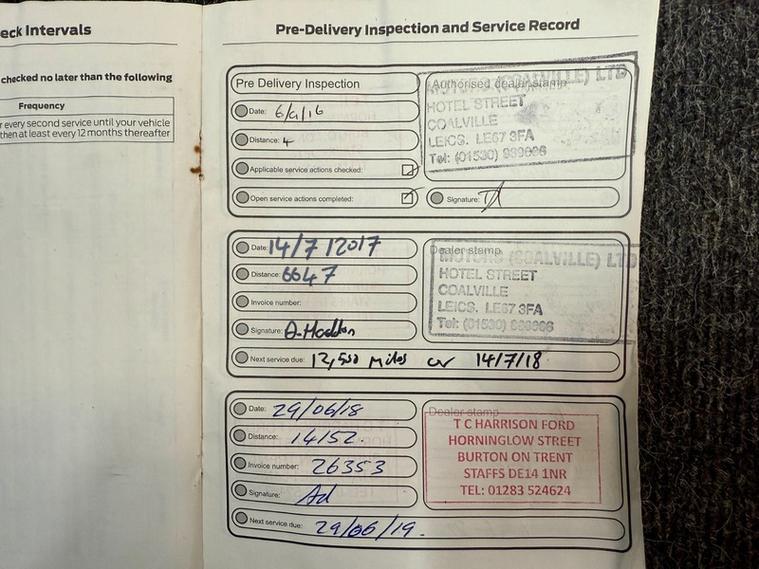 eck Intervals
checked no later than the following
Frequency
r every second service until your vehicle
then at least every 12 months thereafter
Pre-Delivery Inspection and Service Record
Pre Delivery Inspection
Date: 6/9/16
Distance: 4
Applicable service actions checked:
Open service actions completed:
Authorised dealer stamp
MOTORS (COALVILLE) LTD
HOTEL STREET
COALVILLE
LEICS. LE67 3FA
Tel: (01530)
Signature:
Date: 14/7/2017
Distance: 6647
Invoice number:
Signature:
Next service due: 12,500 miles or 14/7/18
Dealer stamp
MOTORS (COALVILLE) LTD
HOTEL STREET
COALVILLE
LEICS. LE67 3FA
Tel: (01530)
Date: 29/06/18
Distance: 14152
Invoice number: 26353
Signature: Ad
Next service due: 29/06/19.
Dealer stamp
T C HARRISON FORD
HORNINGLOW STREET
BURTON ON TRENT
STAFFS DE14 1NR
TEL: 01283 524624